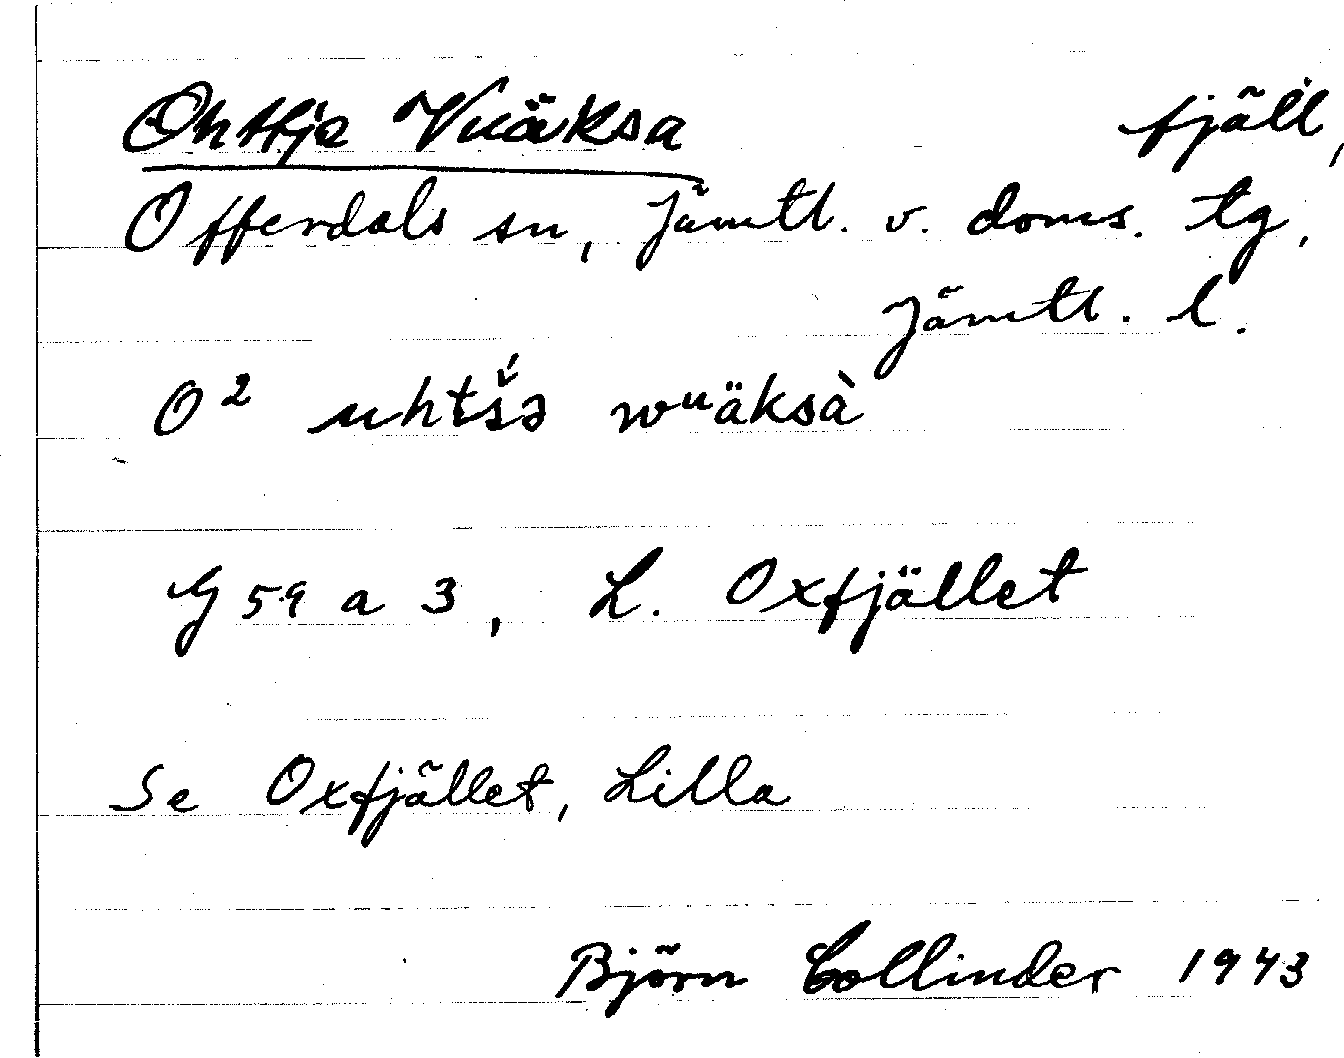 Ohttje Vuäksa fjäll,
Offerdals sn, Jämtl. v. doms. tg,
Jämtl. l.
O² uhtš́ə wᵘäksà
G 59 a 3, L. Oxfjället
Se Oxfjället, Lilla
Björn Collinder 1943